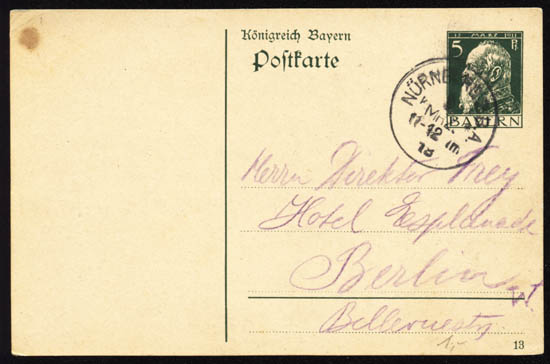 Königreich Bayern
Postkarte
12. MÄRZ 1911
5 Pf
BAYERN
NÜRNBERG
11-12
13
Herrn Direktor Frey
Hotel Esplanade
Berlin W
Bellevuestr.
13